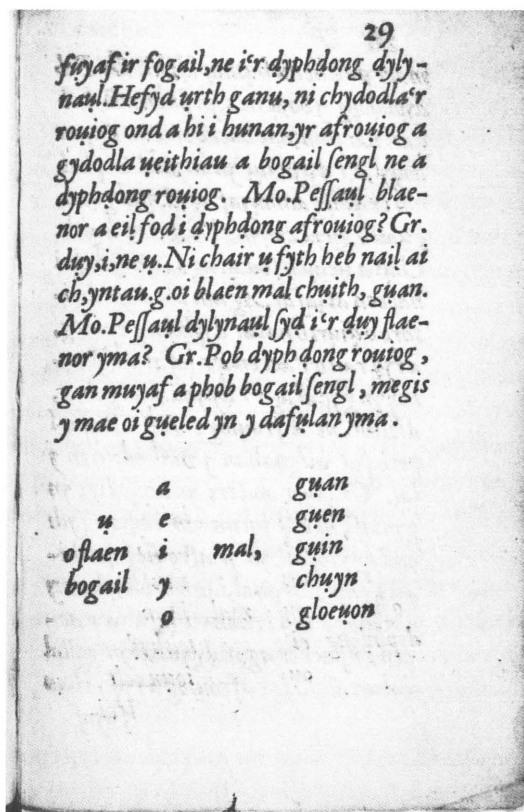 29
fuyaf ir fogail, ne i'r dyphdong dyly-
naụl. Hefyd ụrth ganu, ni chydodla'r
roụiog ond a hi i hunan, yr afroụiog a
gydodla ụeithiau a bogail ſengl ne a
dyphdong roụiog. Mo. Peſſaụl blae-
nor a eil fod i dyphdong afroụiog? Gr.
duy, i, ne ụ. Ni chair u fyth heb nail ai
ch, yntau. g. oi blaen mal chuith, guan.
Mo. Peſſaụl dylynaụl ſyd i'r duy flae-
nor yma? Gr. Pob dyphdong roụiog,
gan muyaf a phob bogail ſengl, megis
y mae oi gueled yn y dafụlan yma.
a guan
ụ e guen
o flaen i mal, guin
bogail y chuyn
o gloeụon